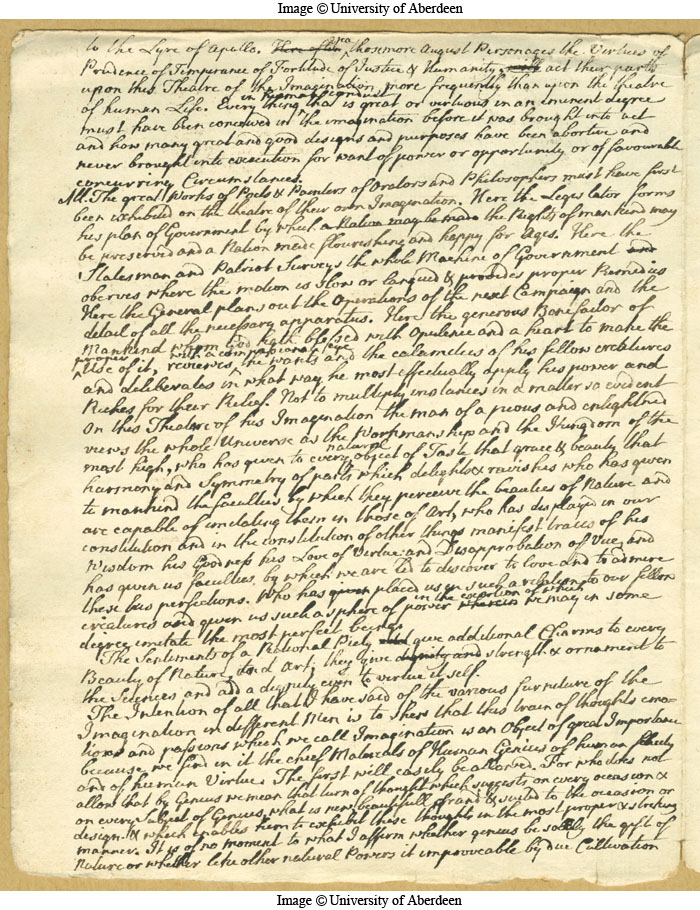 Image © University of Aberdeen
to the Lyre of Apollo. Here often those more August Personages the Virtues of
Prudence of Temperance of Fortitude of Justice & Humanity act their parts
upon this Theatre of the Imagination more frequently than upon the theatre
of human Life. Every thing in human conduct that is great or virtuous in an eminent degree
must have been conceived in the imagination before it was brought into act
and how many great and good designs and purposes have been abortive and
never brought into execution for want of power or opportunity or of favourable
concurring Circumstances.
All The great Works of Poets & Painters of Orators and Philosophers must have first
been exhibited on the theatre of their own Imagination. Here the Legislator forms
his plan of Government by which a Nation may be made the Rights of mankind may
be preserved and a Nation made flourishing and happy for Ages. Here the
Statesman and Patriot Surveys the whole Machine of Government and
observes where the motion is slow or languid & provides proper Remedies
Here the General plans out the Operations of the next Campaign and the
detail of all the necessary apparatus. Here the generous Benefactor of
Mankind whom God hath blessed with Opulence and a heart to make the
proper Use of it, reviews with a compassionate Eye the wants and the calamities of his fellow creatures
and deliberates in what way he most effectually apply his power and
Riches for their Relief. Not to multiply instances in a matter so evident
On this Theatre of his Imagination the man of a pious and enlightned
views the whole Universe as the Workmanship and the Kingdom of the
most high, who has given to every natural object of Taste that grace & beauty that
harmony and Symmetry of parts which delights & ravishes who has given
to mankind the faculties by which they perceive the beauties of Nature and
are capable of imitating them in those of Art, who has displayed in our
constitution and in the constitution of other things manifest traces of his
Wisdom his Goodness his Love of Virtue and Disapprobation of Vice, and
has given us faculties by which we are led to discover to love and to admire
these his perfections. Who has given placed us in such a relation to our fellow
creatures and given us such a sphere of power wherein in the exertion of which we may in some
degree imitate the most perfect being.
The Sentiments of a Rational Piety give additional Charms to every
Beauty of Nature and Art, they give dignity and strength & ornament to
the Sciences and add a dignity even to virtue it self.
The Intention of all that I have said of the various furniture of the
Imagination in different Men is to shew that this train of thoughts emo-
tions and passions which we call Imagination is an Object of great Importance
because we find in it the chief Materials of Human Genius of human felicity
and of human Virtue. The first will easily be allowed. For who does not
allow that by Genius we mean that turn of thought which suggests on every occasion &
on every Subject of Genius, what is new beautifull grand & suited to the occasion or
design & which enables him to exhibit these thoughts in the most proper & striking
manner. It is of no moment to what I affirm whether genius be solely the gift of
Nature or whether like other natural Powers it improveable by due Cultivation
Image © University of Aberdeen